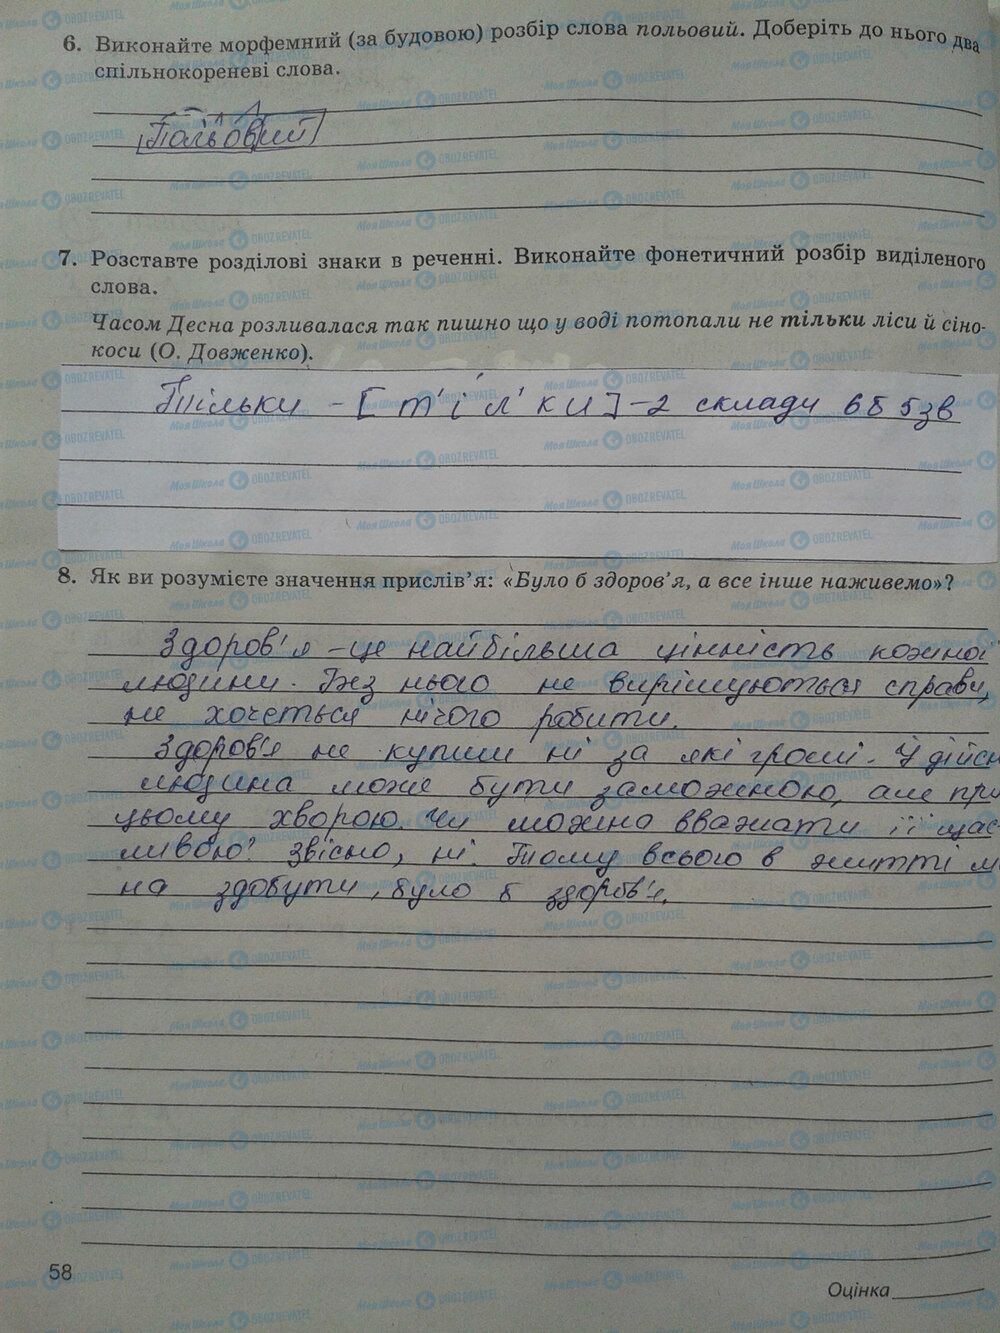 6. Виконайте морфемний (за будовою) розбір слова польовий. Доберіть до нього два
спільнокореневі слова.
Польовий
7. Розставте розділові знаки в реченні. Виконайте фонетичний розбір виділеного
слова.
Часом Десна розливалася так пишно що у воді потопали не тільки ліси й сіно-
коси (О. Довженко).
Тільки - [т'і л' к и] - 2 склади 6б 5зв
8. Як ви розумієте значення прислів'я: «Було б здоров'я, а все інше наживемо»?
Здоров'я - це найбільша цінність кожної
людини. Без нього не вирішуються справи,
не хочеться нічого робити.
Здоров'я не купиш ні за які гроші. У дійсн
людина може бути заможною, але при
цьому хворою. Чи можна вважати її щас
ливою? Звісно, ні. Тому всього в житті м
на здобути, було б здоров'я.
58
Оцінка
Моя Школа OBOZREVATEL